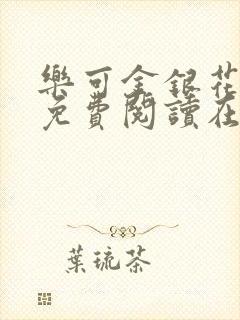 樂可金銀花
免費閱讀在
葉琉茶